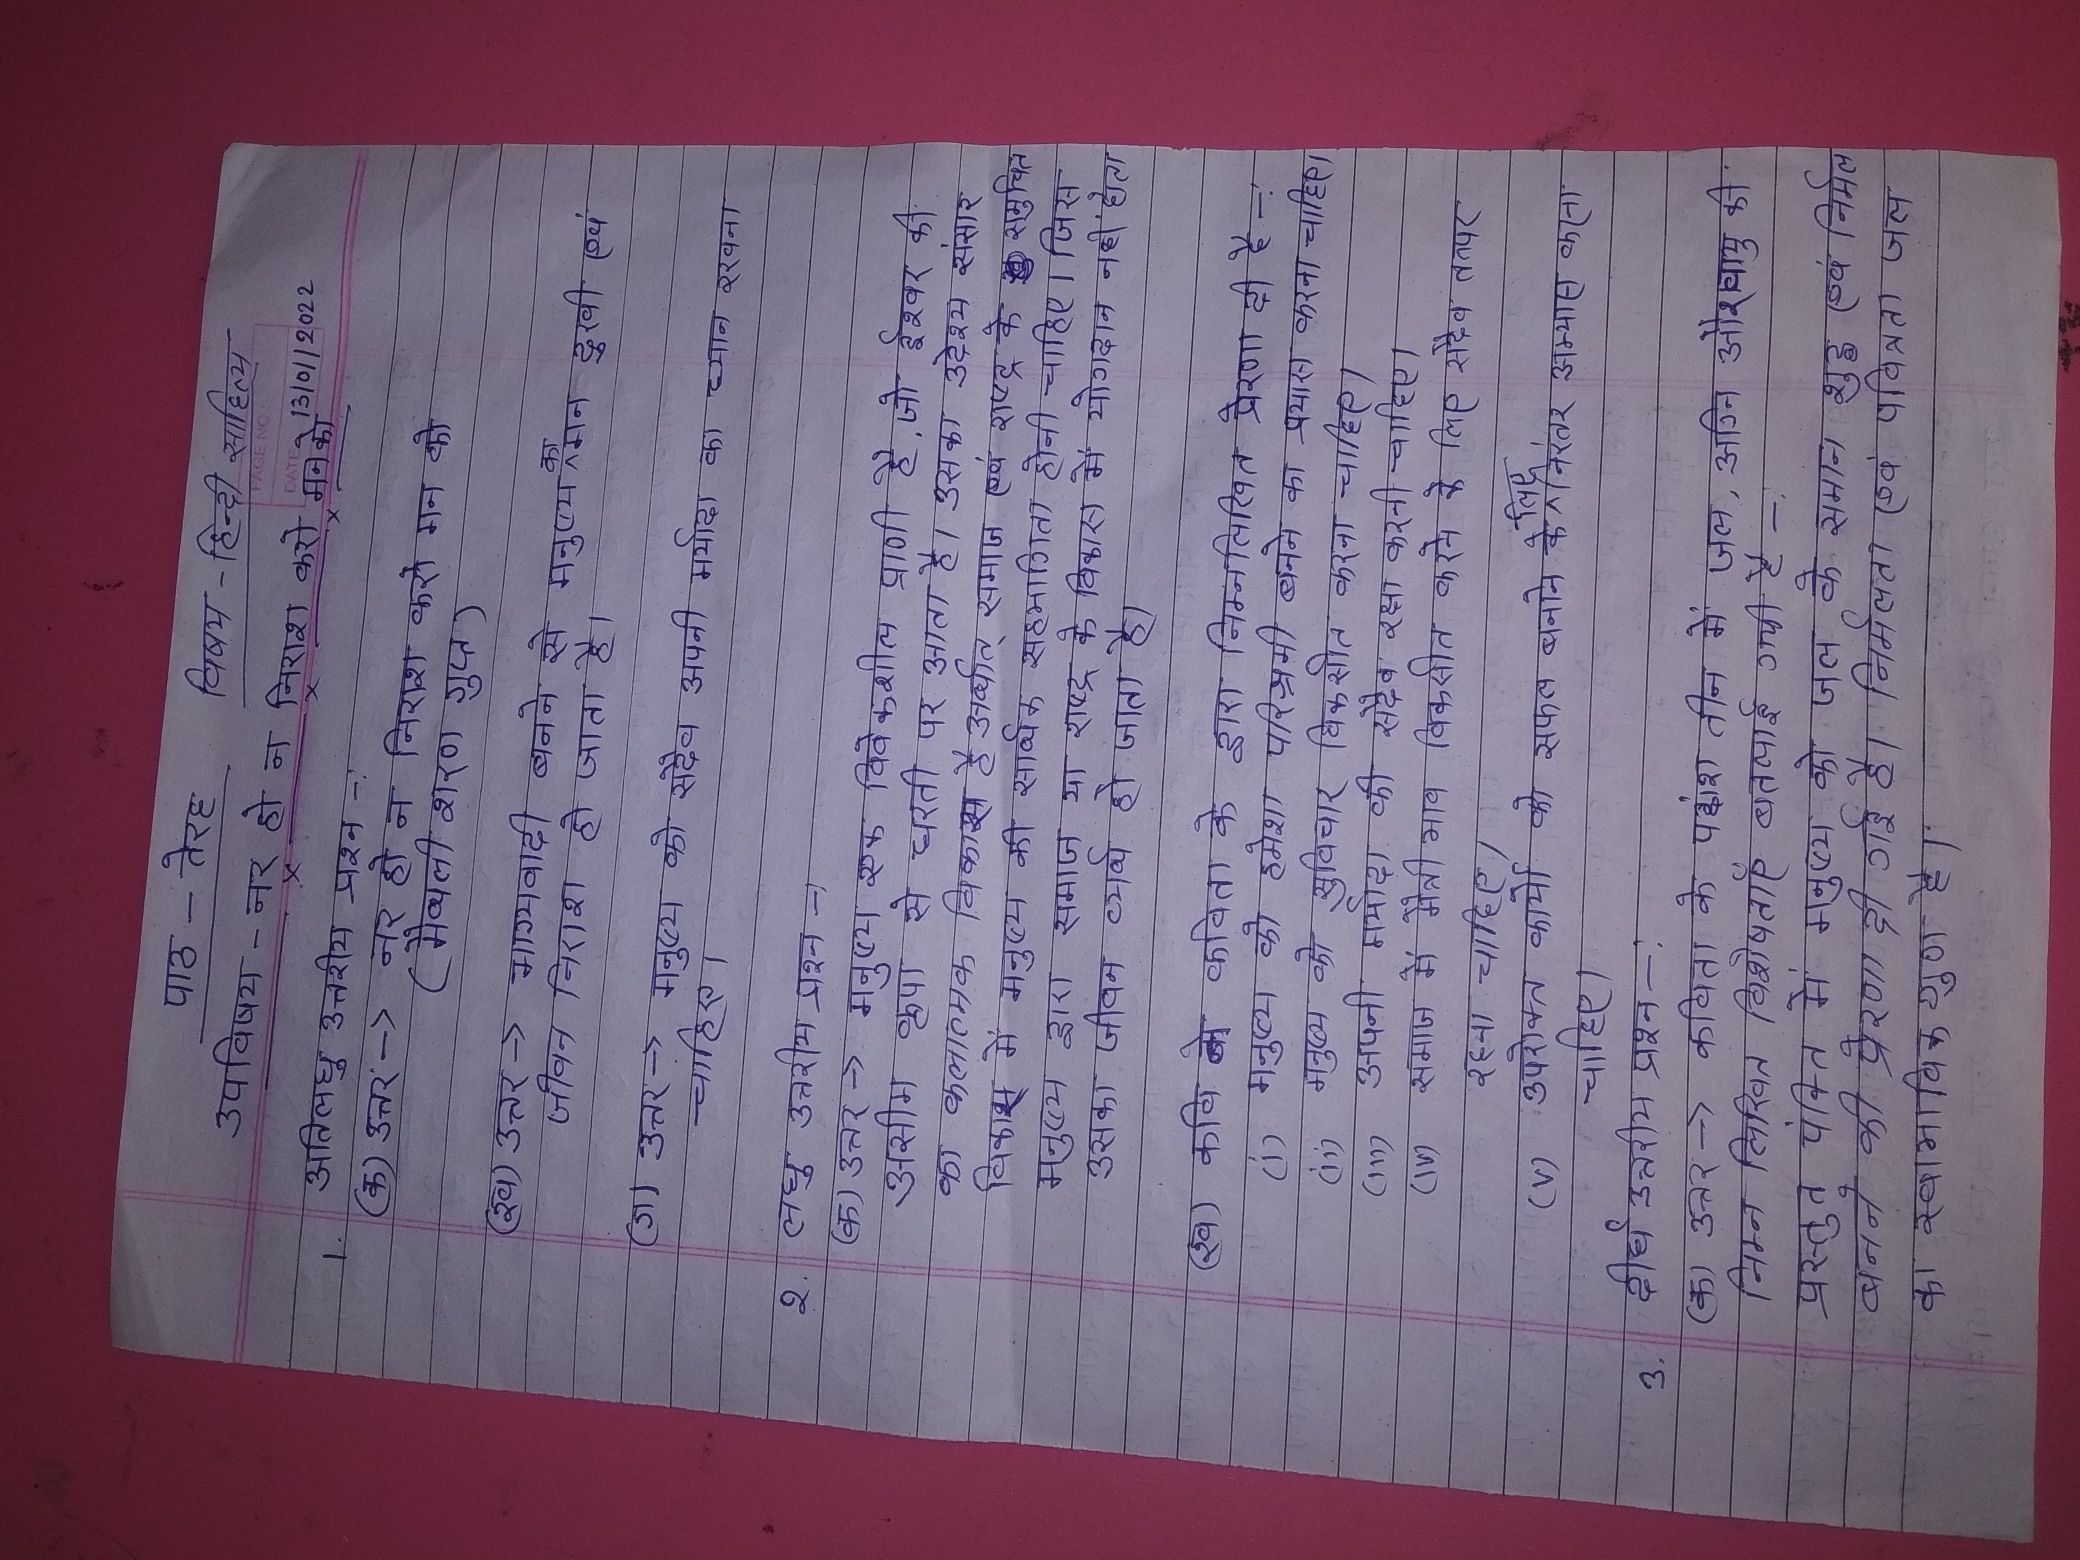 पाठ - तेरह विषय - हिन्दी साहित्य
PAGE NO
DATE 13/01/2022
उपविषय - नर हो न निराश करो मन को
1. अतिलघु उत्तरीय प्रश्न -:
(क) उत्तर -> नर हो न निराश करो मन को
(मैथिली शरण गुप्त)
(ख) उत्तर -> भाग्यवादी बनने से मनुष्य का मन दुखी एवं
जीवन निराश हो जाता है।
(ग) उत्तर -> मनुष्य को सदैव अपनी मर्यादा का ध्यान रखना
चाहिए।
2. लघु उत्तरीय प्रश्न -:
(क) उत्तर -> मनुष्य एक विवेकशील प्राणी है, जो ईश्वर की
असीम कृपा से धरती पर आता है। उसका उदेश्य संसार
का कलात्मक विकास है अर्थात् समाज एवं राष्ट्र के समुचित
विकास में मनुष्य की सार्थक सहभागिता होनी चाहिए। जिस
मनुष्य द्वारा समाज या राष्ट्र के विकास में योगदान नहीं होता
उसका जीवन व्यर्थ हो जाता है।
(ख) कवि ने कविता के द्वारा निम्नलिखित प्रेरणा दी है -:
(i) मनुष्य को हमेशा परिश्रमी बनने का प्रयास करना चाहिए।
(ii) मनुष्य को सुविचार विकसीत करना चाहिए।
(iii) अपनी मर्यादा की सदैव रक्षा करनी चाहिए।
(iv) समाज में मैत्री भाव विकसीत करने के लिए सदैव तत्पर
रहना चाहिए।
(v) उपरोक्त कार्यो को सफल बनाने के लिए निरंतर अभ्यास करना
चाहिए।
3. दीर्घ उत्तरीय प्रश्न -:
(क) उत्तर -> कविता के पद्यांश तीन में जल, अग्नि और वायु की
निम्न लिखित विशेषताएँ बतलाई गयी है -:
प्रस्तुत पंक्ति में मनुष्य को जल के समान शुद्ध एवं निर्मल
बनने की प्रेरणा दी गई है। निर्मलता एवं पवित्रता जल
का स्वाभाविक गुण है।